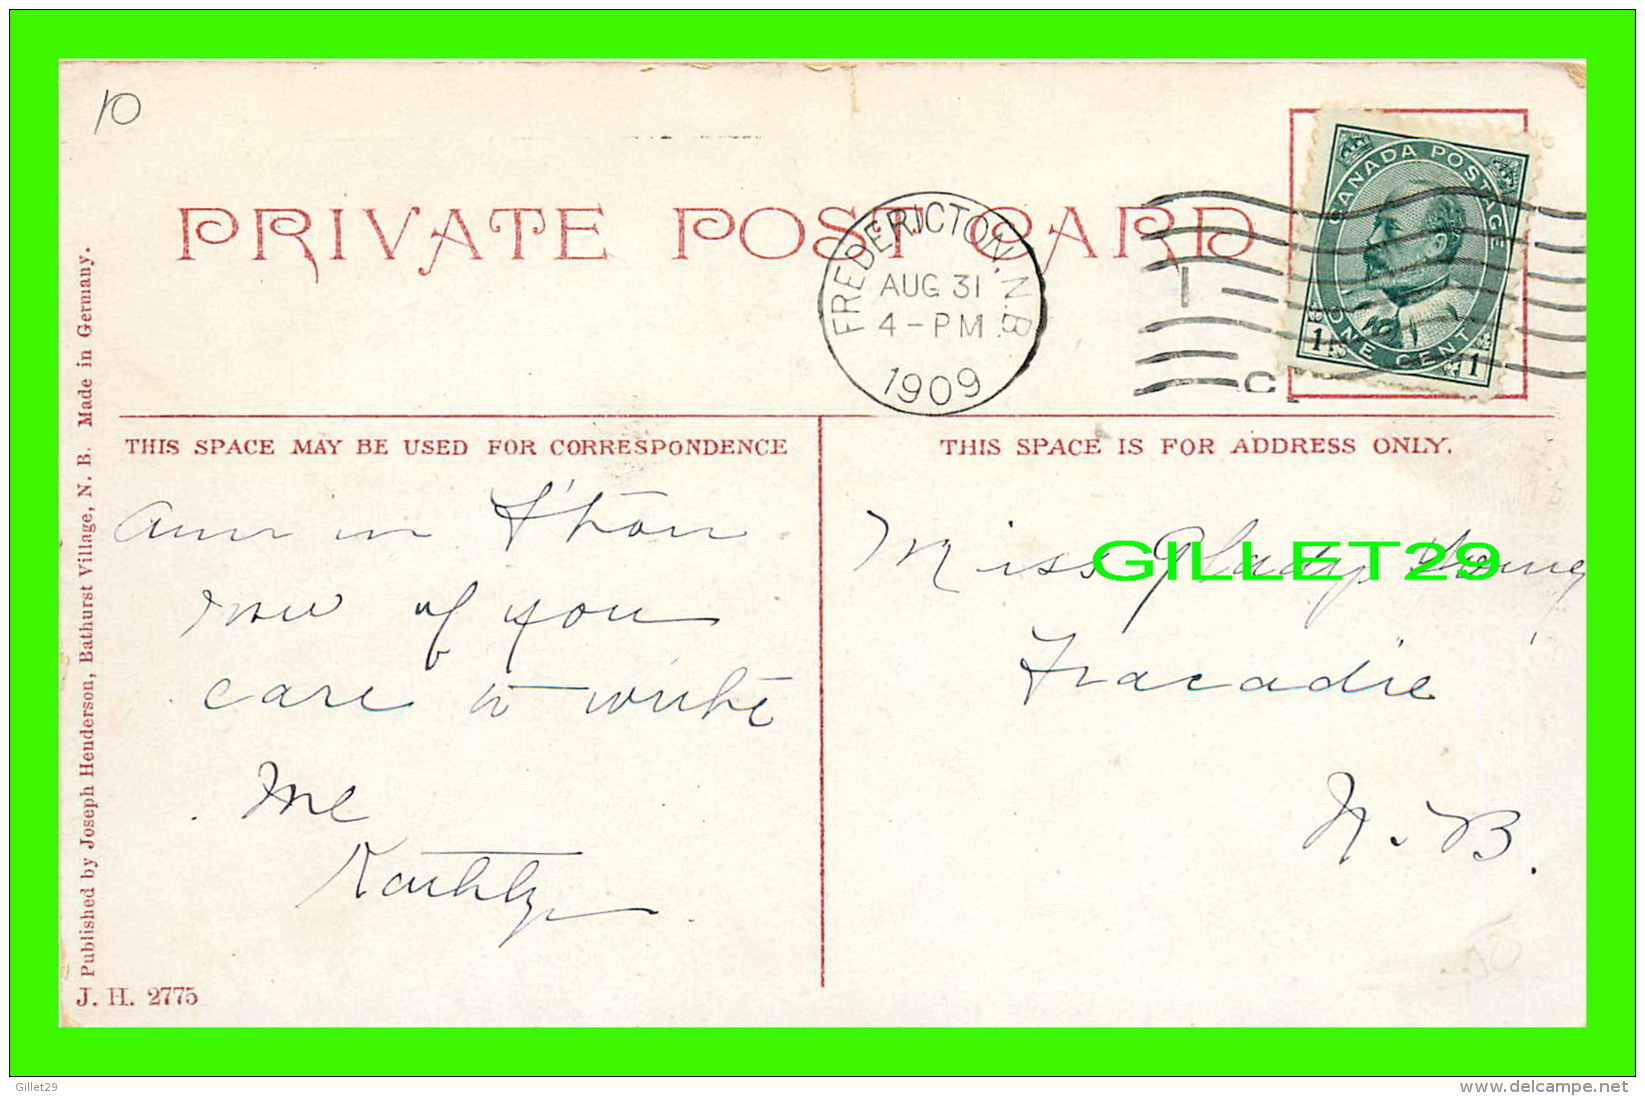 10
PRIVATE POST CARD
FREDERICTON, N.B.
AUG 31
4-PM
1909
CANADA POSTAGE
ONE CENT
1 1
THIS SPACE MAY BE USED FOR CORRESPONDENCE
THIS SPACE IS FOR ADDRESS ONLY.
Am in F'ton
now if you
care to write
me
Kathly
Miss Gladys Young
Tracadie
N.B.
GILLET29
Published by Joseph Henderson, Bathurst Village, N. B. Made in Germany.
J. H. 2775
Gillet29
www.delcampe.net